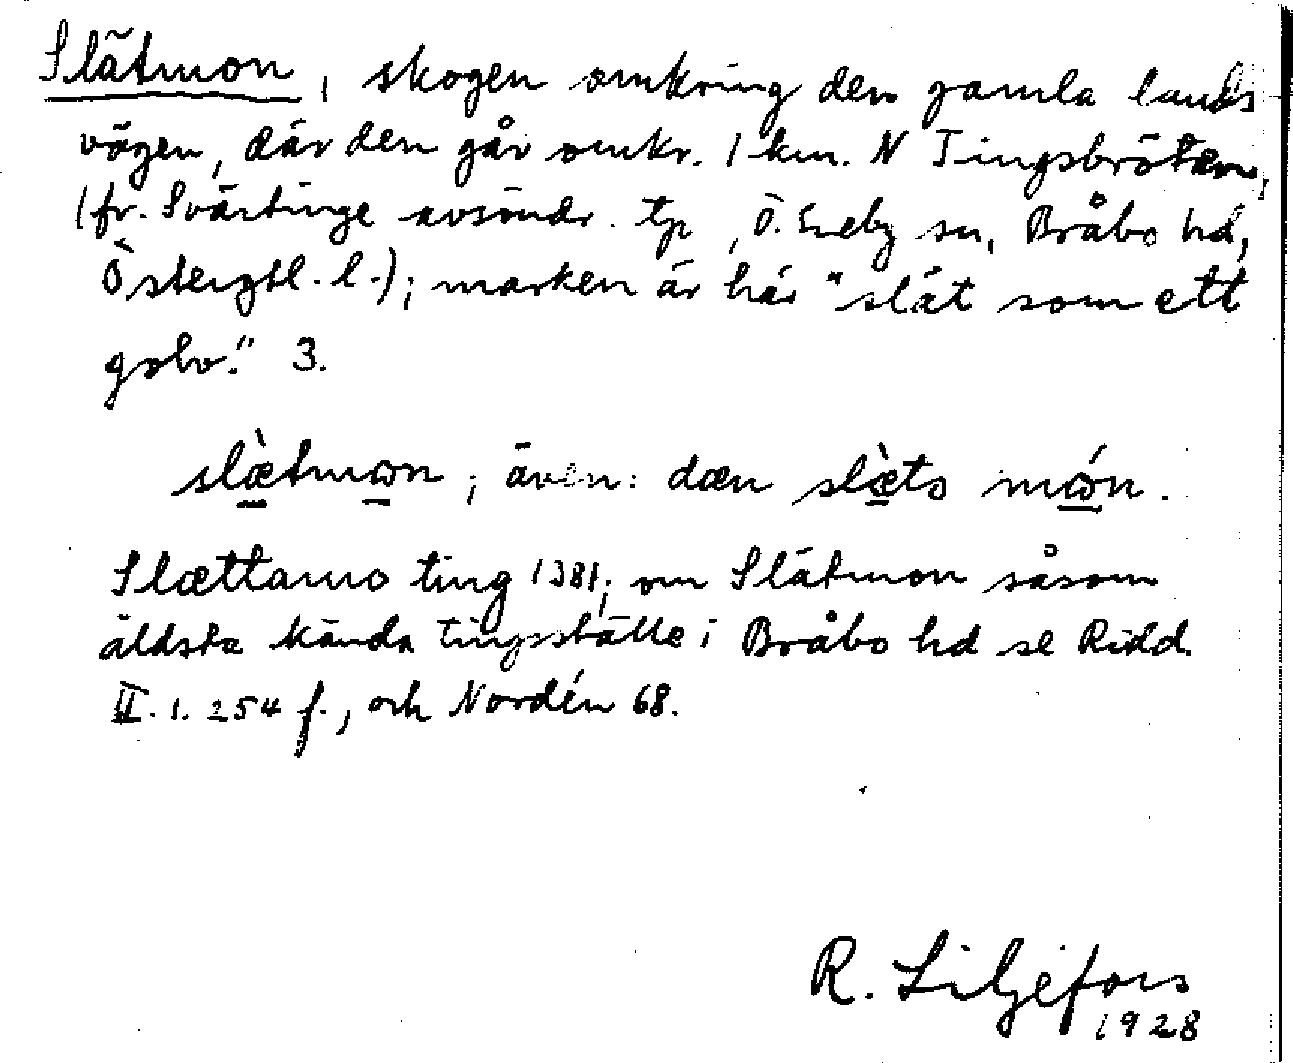 Slätmon, skogen omkring den gamla lands
vägen, där den går omkr. 1 km. N Tingsbröten,
(fr. Svärtinge avsöndr. tp, Ö. Eneby sn, Bråbo hd,
Östergtl. l.); marken är här "slät som ett
golv." 3.
slæ̀tmωn; även: dæn slæ̀to mώn.
Slættamo ting 1381; om Slätmon såsom
äldsta kända tingsställe i Bråbo hd se Ridd.
II. 1. 254 f., och Nordén 68.
R. Liljefors
1928